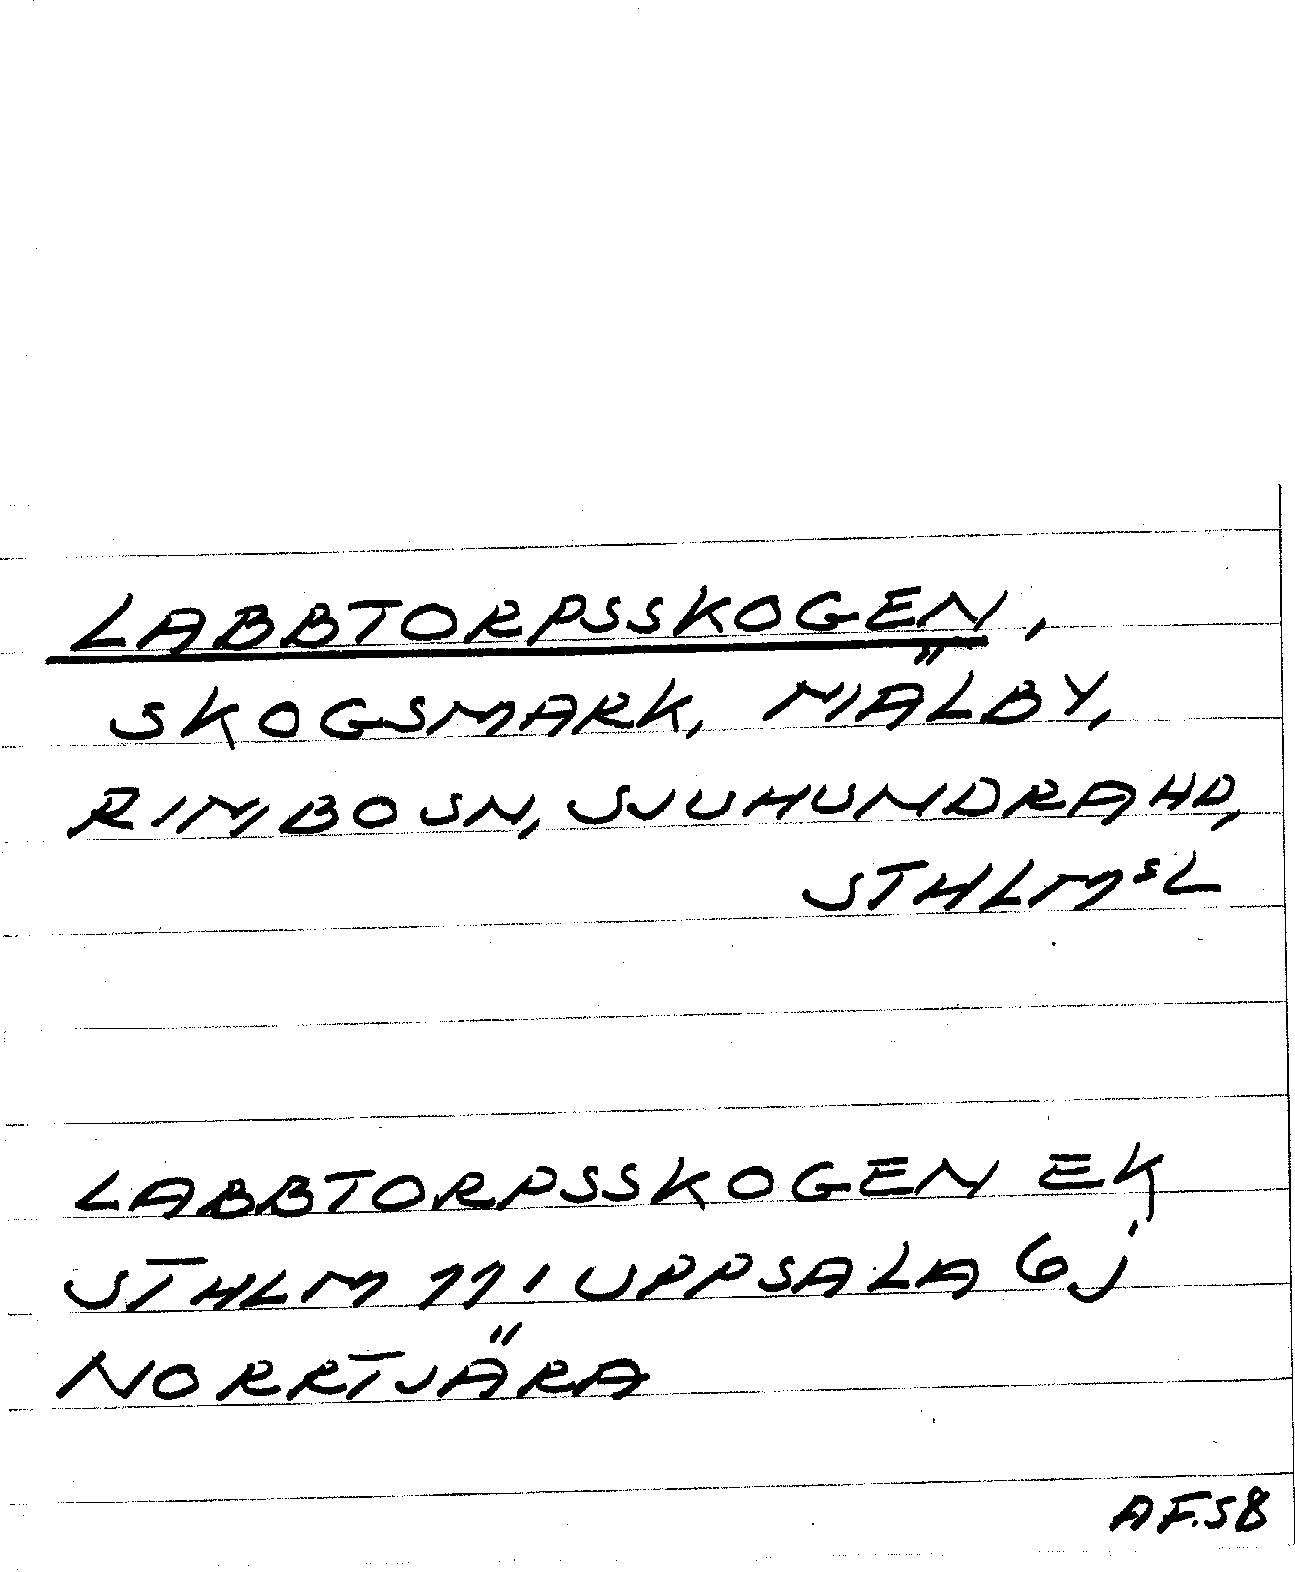 LABBTORPSSKOGEN,
SKOGSMARK, MÄLBY,
RIMBO SN, SJUHUNDRA HD,
STHLMSL
LABBTORPSSKOGEN EK
STHLM 111 UPPSALA 6j
NORRTJÄRA
AF.58